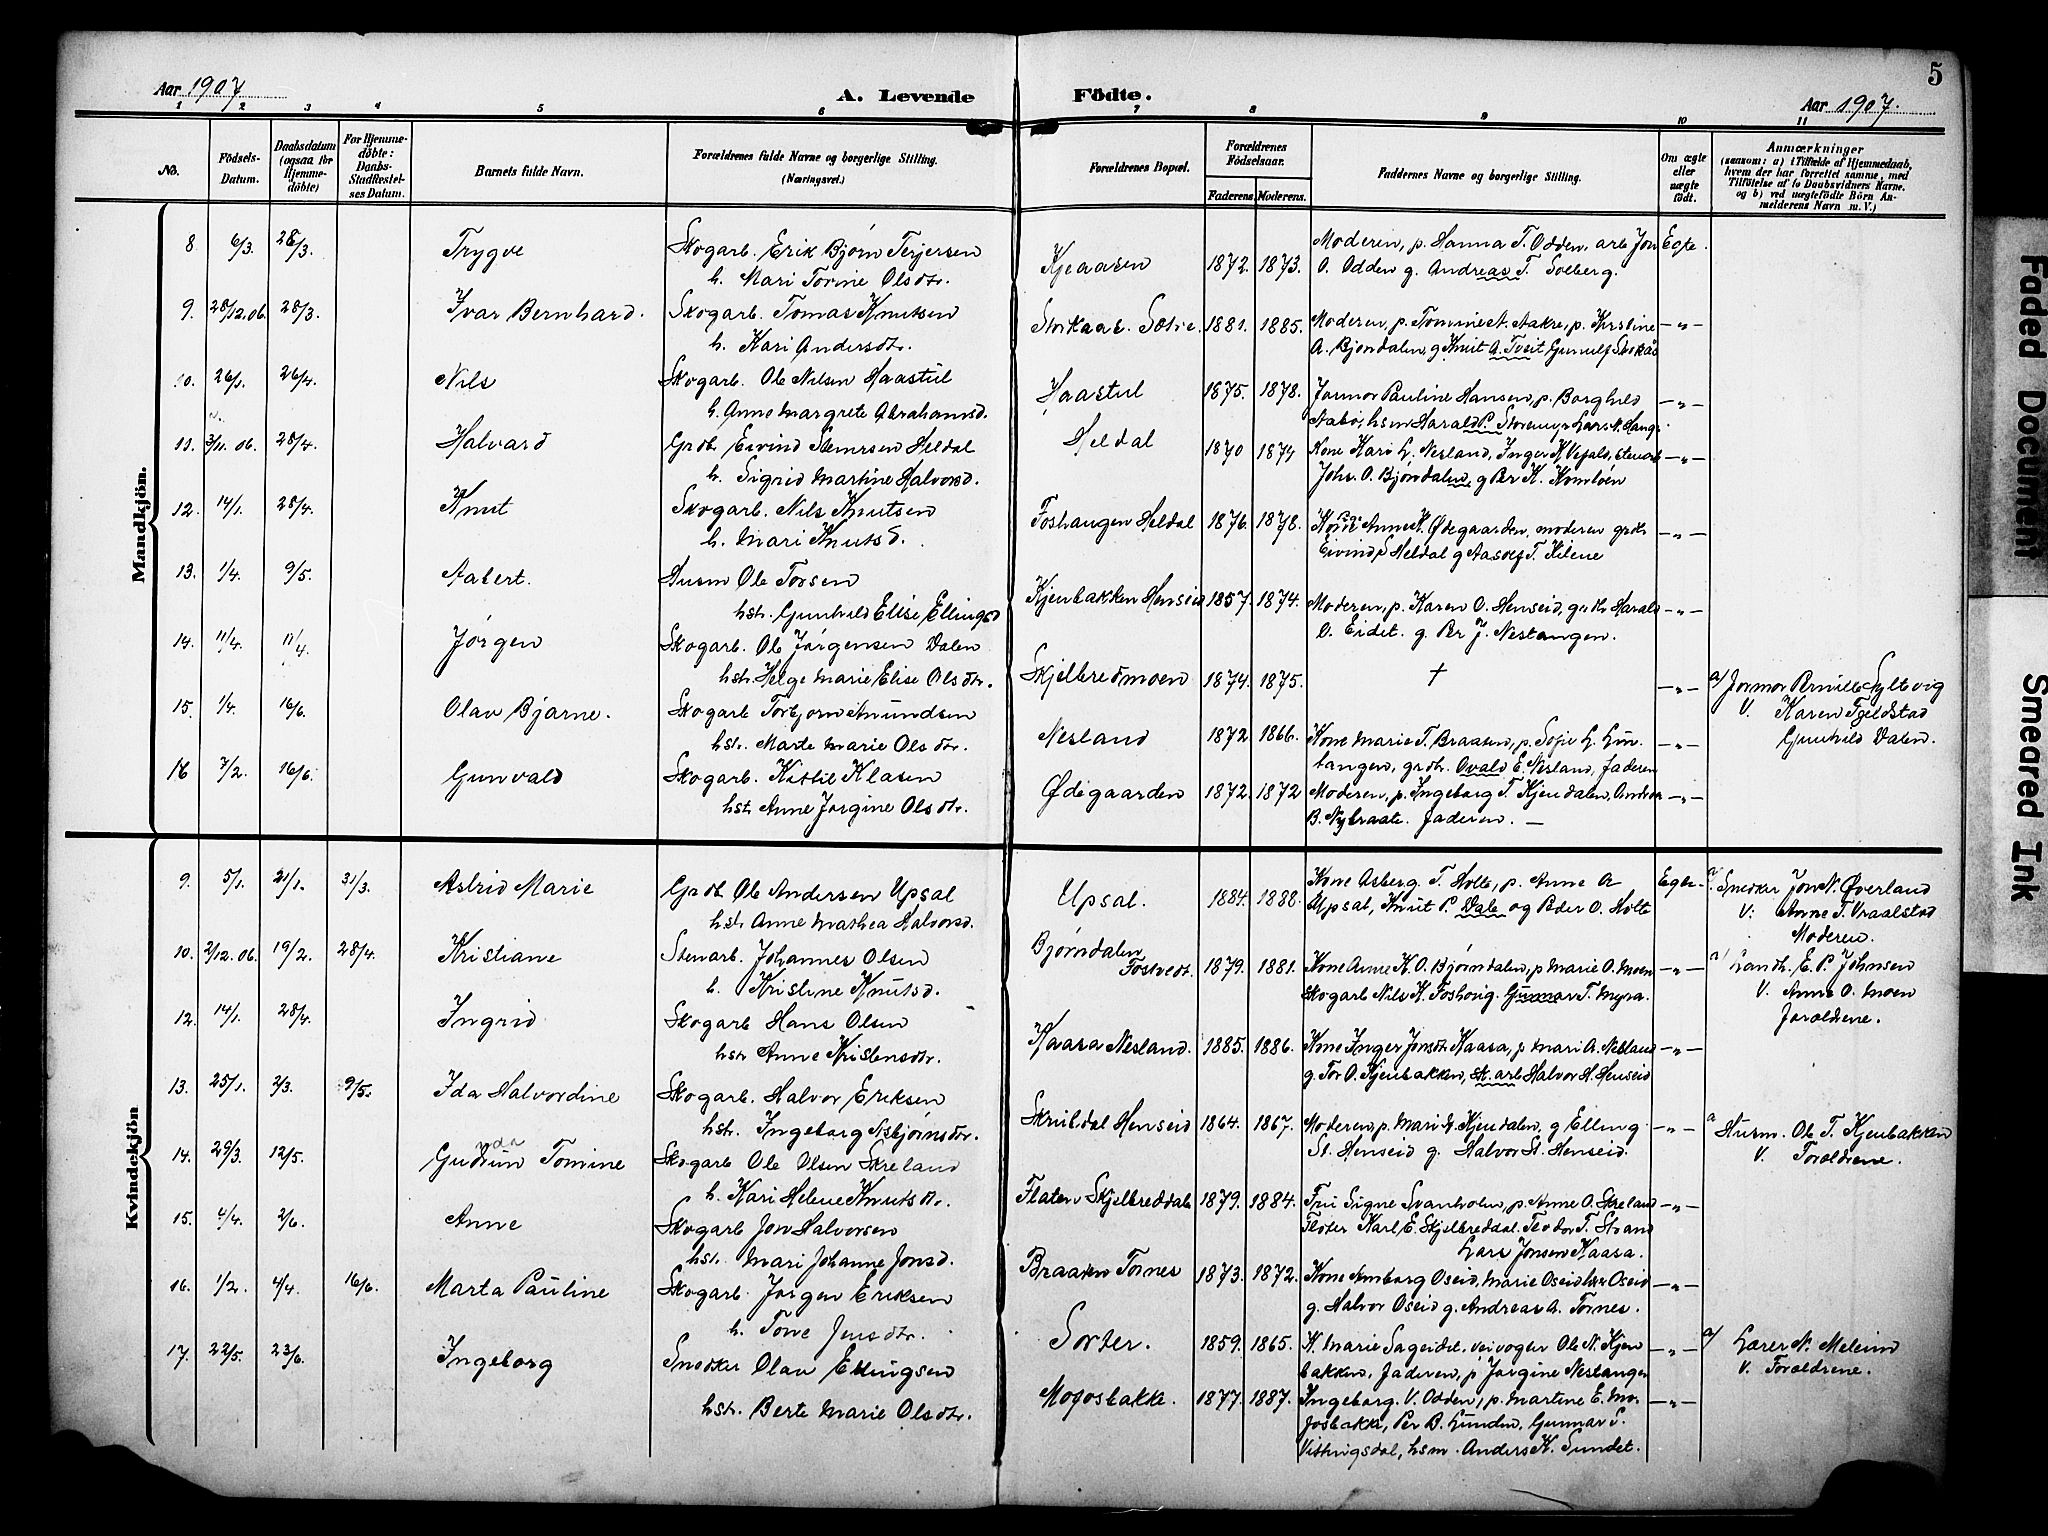 5
Aar 1907
A. Levende Födte.
Aar 1907.
1 2 3 4 5 6 7 8 9 10 11
No.
Födsels-Datum.
Daabsdatum (ogsaa for Hjemmedöbte)
For Hjemmedöbte: Daabs-Stadfæstelses Datum.
Barnets fulde Navn.
Forældrenes fulde Navne og borgerlige Stilling. (Næringsvei.)
Forældrenes Bopæl.
Forældrenes Födselsaar.
Faderens. Moderens.
Faddernes Navne og borgerlige Stilling.
Om ægte eller uægte födt.
Anmærkninger
(saasom: a) i Tilfælde af Hjemmedaab, hvem der har forrettet samme, med Tilföielse af to Daabsvidners Navne, og b) ved uægtefödte Börn Anmelderens Navn m. V.)
Mandkjön.
8. 6/3. 28/3. Trygve Skogarb. Erik Bjørn Terjersen Kjeaasen 1872. 1873. Moderen, p. Hanna T. Odden, arb Jon Egte.
h. Mari Torine Olsdtr. O. Odden g. Andreas T. Solberg.
9. 28/12.06. 28/3. Ivar Bernhard. Skogarb. Tomas Knutsen 1881. 1885. Moderen, p. Tomine A. Aakre, p. Kirstine -"-
h. Kari Andersdtr. A. Bjørndalen, g Knut A. Tveit
10. 26/1. 26/4. Nils Skogarb. Ole Nilsen Haastul Haastul 1875. 1878. Jormor Pauline Hansen, p. Borghild -"-
h. Anne Margrete Abrahamsd. Aabø, hsm Harald P. Storemyr Lars N. Haug.
11. 3/11.06. 28/4. Halvard Grdb. Eivind Steinrsen Heldal Heldal 1870 1874 Kone Kari L. Nesland, Inger K. -"-
h. Sigrid Martine Halvorsd. Johs. O. Bjørndalen, g Per K.
12. 14/1. 28/4. Knut Skogarb. Nils Knutsen Foshaugen Heldal 1876. 1878. Kone Anne K. Ødegaarden, moderen grdb. -"-
h. Mari Knutsd. Eivind S Heldal g Aasolf T. Kilene
13. 1/4. 9/5. Aabert. Husm Ole Torsen Kjenbakken Henseid 1857. 1874. Moderen, p. Karen O. Henseid, grdb. Harald -"-
hstr. Gunhild Elise Ellingsd O. Eidet. g. Per J. Nestangen.
14. 11/4. 11/4. Jørgen Skogarb. Ole Jørgensen Dalen Skjelbredmoen 1874. 1875. † -"- a/ Jormor Pernille Syltevig
hstr. Helge Marie Elise Olsdtr. V. Karen Fjeldstad
Gunhild Dalen.
15. 1/4. 16/6. Olav Bjarne. Skogarb Torbjørn Amundsen Nesland 1872 1866. Kone Marie T. Braaten, p. Sofie L. Lin- -"-
hstr. Marte Marie Olsdtr. tangen, grdb. Ovald E. Nesland, Faderen
16 7/2. 16/6. Gunvald Skogarb. Kittil Klasen Ødegaarden 1872. 1872 Moderen, p. Ingeborg T. Kjendalen, -"-
hstr. Anne Jørgine Olsdtr. B. Nybraate. Faderen. —
Kvindekjön
9. 5/1. 21/1. 31/3. Astrid Marie Grdb. Ole Andersen Upsal Upsal. 1884. 1888. Kone Asberg. T. Holte, p. Anne A Egte. a. Snedker Jon N. Øverland
hstr. Anne Mathea Halvorsd. Upsal, Knut P. Dale og Peder O. Holte V: Anne T. Vraalstad
Moderen.
10. 2/12.06. 19/2. 28/4. Kristiane Stenarb. Johannes Olsen Bjørndalen Fostvedt. 1879. 1881. Kone Anne K. O. Bjørndalen, p Marie O. Moen -"- a/ Landh. E. P. Johnsen
h. Kristine Knutsd. Skogarb Nils K. Foshaug. Gunnar T. Myra. V. Anne O. Moen
Foraldrene.
12. 14/1. 28/4. Ingrid Skogarb Hans Olsen Kaasa Nesland. 1885. 1886. Kone Inger Jonsdtr Kaasa, p Mari A. Nesland -"-
hstr Anne Kristensdtr. g. Tor O. Kjenbakken, sk. arb Halvor H. Henseid
13. 25/1. 2/3. 9/5. Ida Halvordine Skogarb. Halvor Eriksen Skrubdal Henseid 1864. 1867. Moderen, p. Mari Kjendalen, g Elling -"- a Husm. Ole T. Kjenbakken
hstr. Ingeborg Asbjørnsdtr. St. Henseid g. Halvor St. Henseid. V. Foraldrene.
14. 29/3. 12/5. Gudrun Tomine Skogarb Ole Olsen Skreland Flaten Skjelbreddale 1879. 1884. Fru Signe Svanholm, p. Anne O. Skreland -"-
h. Kari Helene Knutsdtr. Fløter Karl E. Skjelbreddal. Teodor T. Strand
Lars Jonsen Kaasa.
15. 4/4. 2/6. Anne Skogarb Jon Halvorsen Braaten Tornes 1873. 1872. Kone Amborg Oseid, Marie Oseid Oseid -"-
hstr. Mari Johanne Jonsd. g. Halvor Oseid g. Andreas A. Tornes.
16. 1/2. 4/4. 16/6. Marta Pauline Skogarb. Jørgen Eriksen Sorter. 1859. 1865. K. Marie Sageidet. veivogter Ole N. Kjen -"- a/ Lærer N. Meleim
h. Tone Jensdtr. bakken, Faderen, p Jørgine Nestangen V. Foraldrene.
17. 22/5. 23/6. Ingeborg Snedker Olav Ellingsen Mogosbakke. 1877. 1887. Ingeborg. V. Odden, p. Martine E. Mo- -"-
hstr. Berte Marie Olsdtr. josbakke, Per B. Lunden, Gunnar S.
Vittingsdal, hsm. Anders K. Sundet.
Faded Document
Smeared Ink